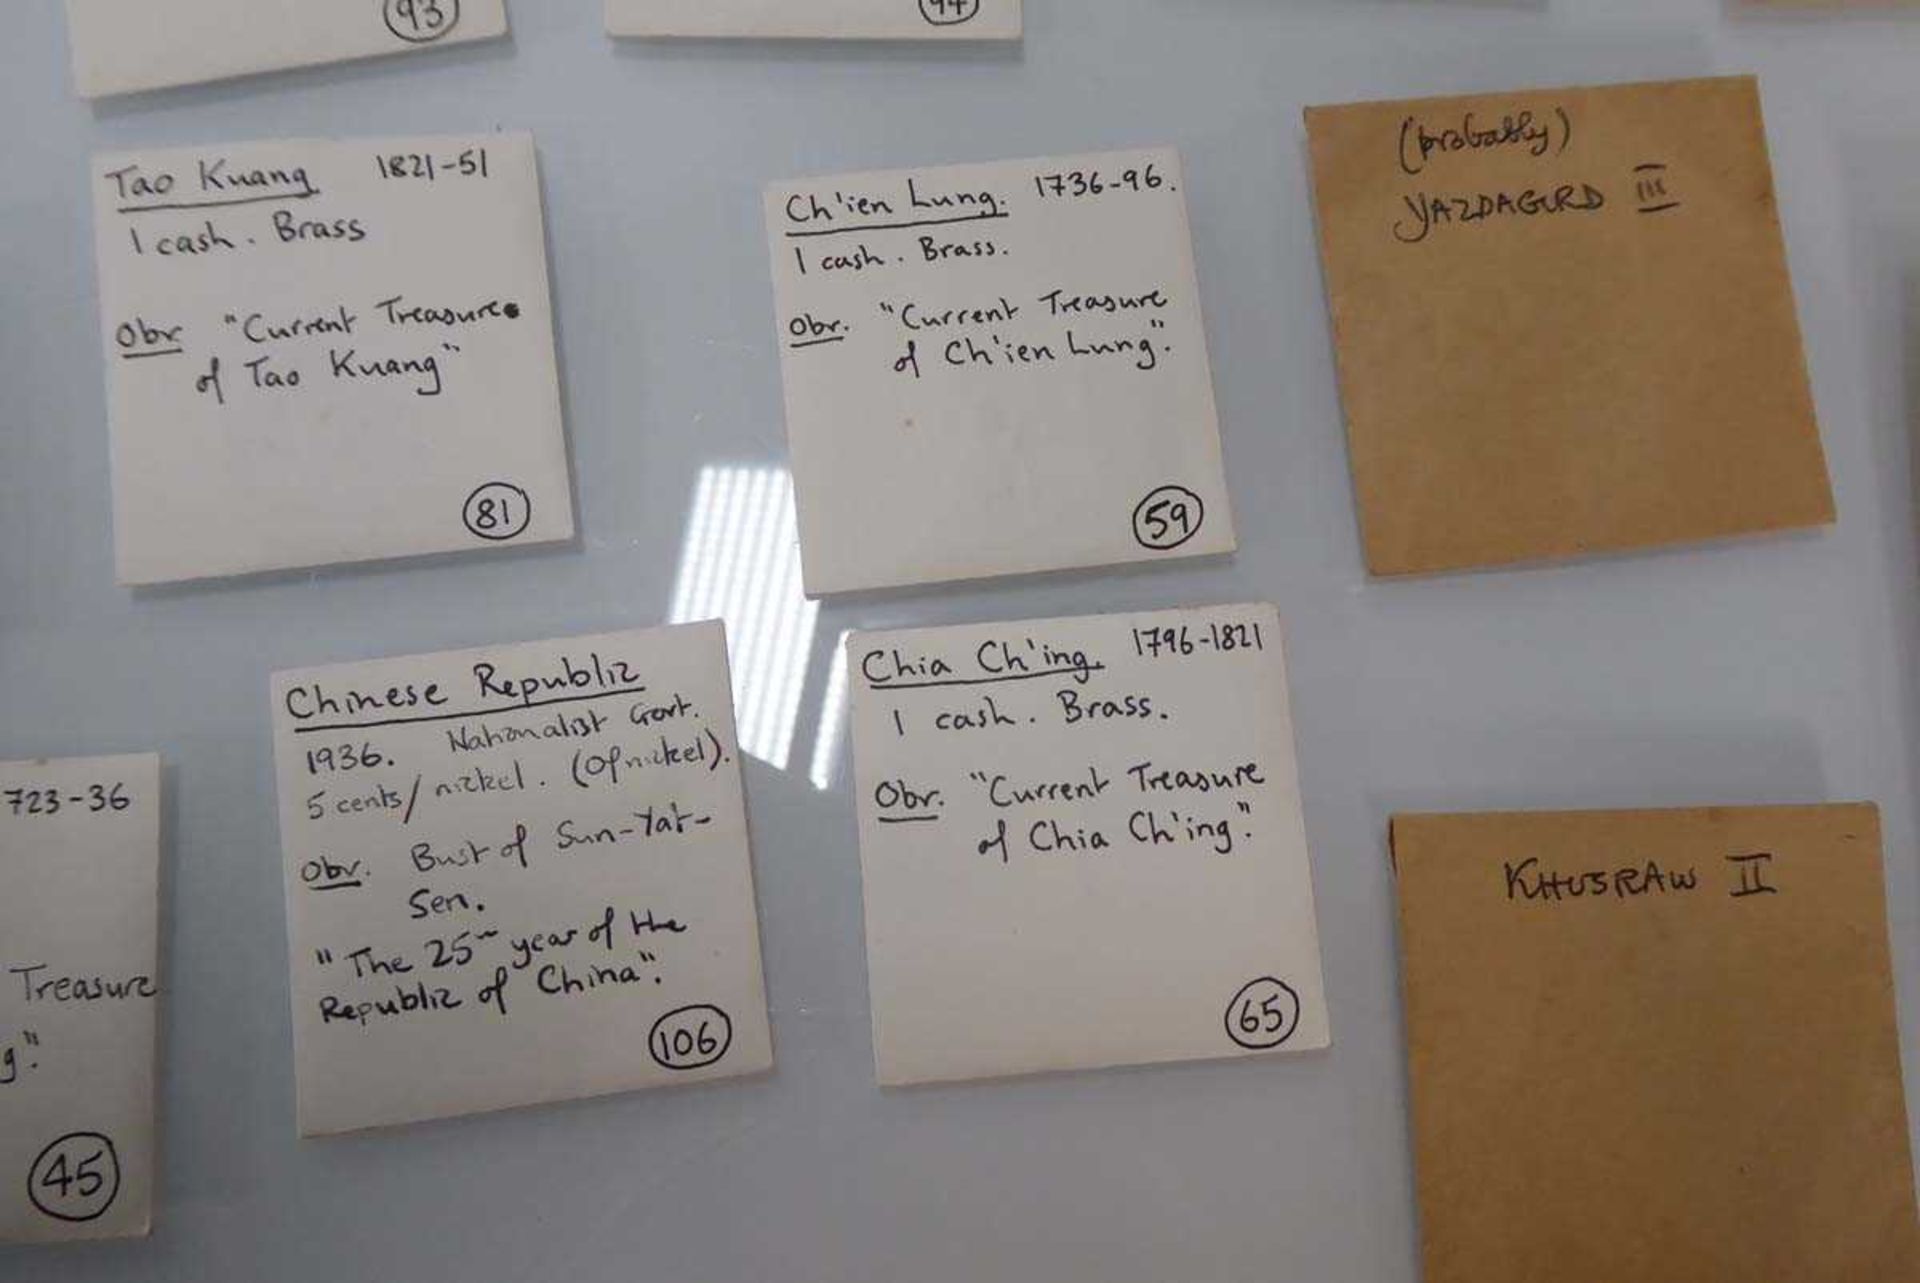 93
94
Tao Kuang 1821-51
1 cash. Brass
Obv "Current Treasure
of Tao Kuang"
81
Ch'ien Lung. 1736-96.
1 cash. Brass.
Obv. "Current Treasure
of Ch'ien Lung".
59
(probably)
YAZDAGURD III
723-36
Treasure
g".
45
Chinese Republic
1936. Nationalist Govt.
5 cents/nickel. (Of nickel).
Obv. Bust of Sun-Yat-
Sen.
"The 25th year of the
Republic of China".
106
Chia Ch'ing. 1796-1821
1 cash. Brass.
Obv. "Current Treasure
of Chia Ch'ing".
65
KHUSRAW II